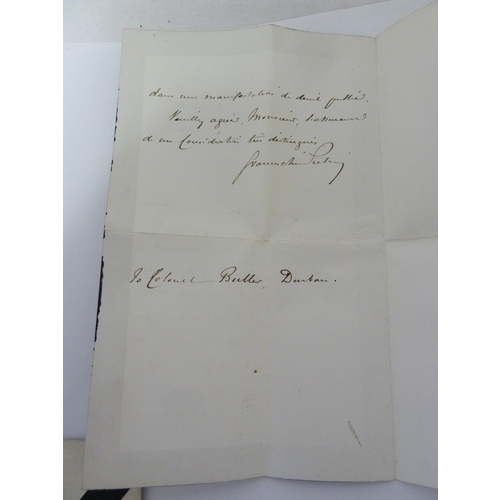 dans une manifestation de deuil public.
Veuillez agréer, Monsieur, l'assurance
de ma Considération très distinguée
To Colonel Butler, Durban.